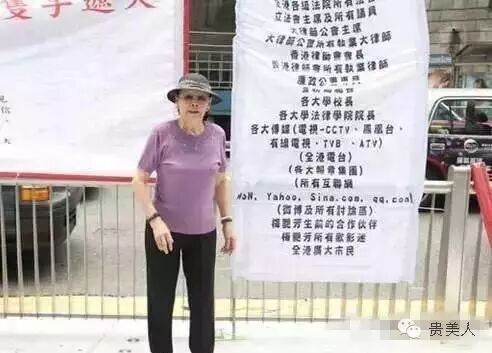 隻手遮天
香港各級法院所有法官
立法會主席及所有議員
大律師公會主席
大律師公會所有執業大律師
香港律師會會長
香港律師會所有執業律師
各大學校長
各大學法律學院院長
各大傳媒(電視-CCTV、鳳凰台、
有線電視、TVB、ATV)
(全港電台)
(各大報章集團)
(所有互聯網
MSN, Yahoo, Sina.com, qq.com)
(微博及所有討論區)
梅艷芳生前的合作伙伴
梅艷芳所有歌影迷
全港廣大市民
贵美人